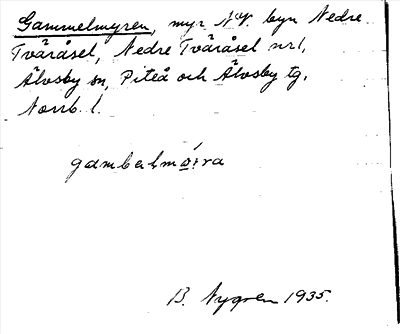 Gammelmyren, myr N.V. byn Nedre
Tväråsel, Nedre Tväråsel nr 1,
Älvsby sn, Piteå och Älvsby tg,
Norrb. l.
gambəlmø̱:́ra
B. Nygren 1935.